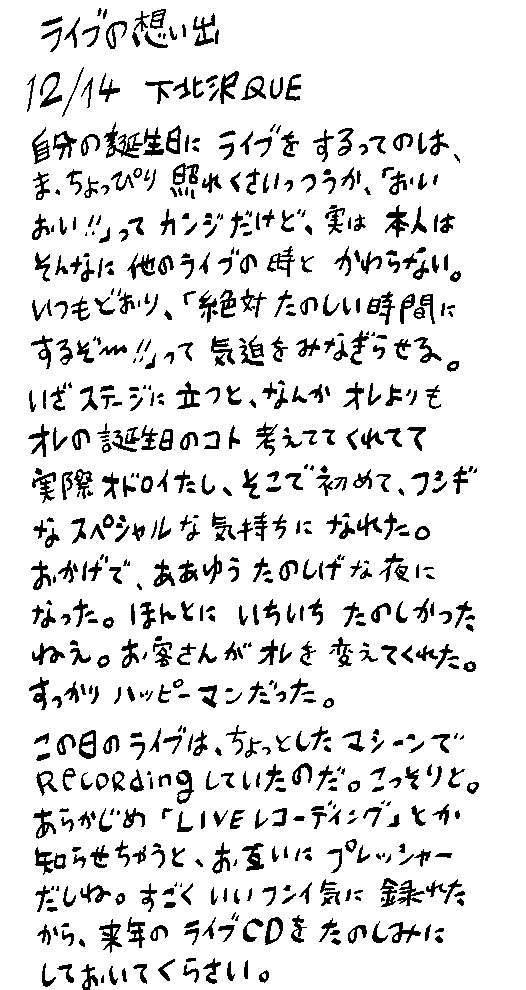 ライブの想い出
12/14 下北沢QUE
自分の誕生日に ライブを するってのは、
ま、ちょっぴり 照れくさいっつうか、「おい
おい!!」って カンジだけど、実は 本人は
そんなに 他のライブの 時と かわらない。
いつもどおり、「絶対 たのしい時間に
するぞ〜!!」って 気迫を みなぎらせる。
いざ ステージに 立つと、なんか オレよりも
オレの 誕生日のコト 考えててくれてて
実際 オドロイたし、そこで 初めて、フシギ
な スペシャルな 気持ちに なれた。
おかげで、ああゆう たのしげな 夜に
なった。ほんとに いちいち たのしかった
ねえ。お客さんが オレを 変えてくれた。
すっかり ハッピーマンだった。
この日の ライブは、ちょっとした マシーンで
Recordingしていたのだ。こっそりと。
あらかじめ「LIVEレコーディング」とか
知らせちゃうと、お互いに プレッシャー
だしね。すごく いいフンイ気に 録れた
から、来年の ライブCDを たのしみに
しておいてくらさい。